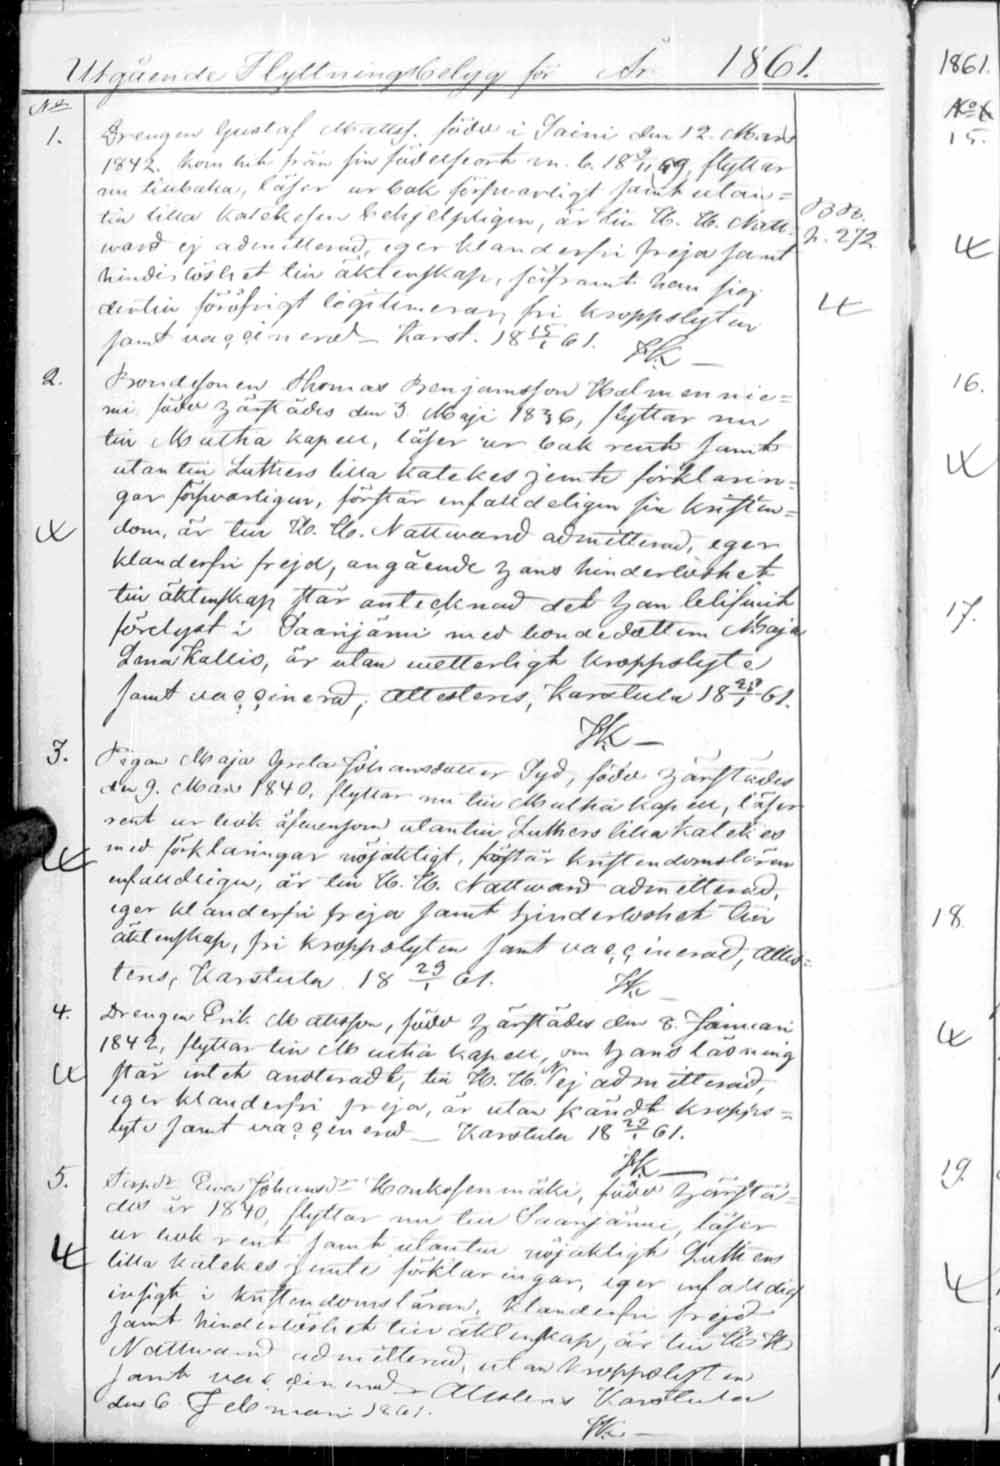 Utgående Flyttningsbetyg för År 1861.
No
1. Drengen Gustaf Mattsf. född i Saini den 12. Mars
1842. kom hit från sin födelseort m. b. 18 59, flyttar
nu tillbaka, läser ur bok försvarligt samt utan=
till lilla katekesen behjelpligen, är till H. H. Natt=
ward ej admitterad, eger klanderfri frejd samt
hinderlöshet till äktenskap, såframt han sig
dertill föröfrigt legitimerar, fri kroppslyten
samt vaccinerad_ Karst. 18 15/1 61.
B Bo.
p. 272
2. Bondesonen Thomas Benjamsson Holmennie=
mi född härstädes den 3 Maji 1836, flyttar nu
till Multia kapell, läser ur bok rent samt
utantill Luthers lilla katekes jemte förklarin=
gar försvarligen, förstår enfalldeligen sin kristen=
dom, är till H. H. Nattward admitterad, eger
klanderfri frejd, angående hans hinderlöshet
till äktenskap står antecknad det han blifvit
förelyst i Saarijärvi med bondedottern Maja
Lena Kallio, är utan wetterligt kroppslyte
samt vaccinerad, attesteras, Karstula 18 /1 61.
3. Pigan Maja Greta Johansdotter Syd, född härstädes
den 9. Mars 1840, flyttar nu till Multia kapell, läser
rent ur bok äfvensom utantill Luthers lilla katekes
med förklaringar nöjaktigt, förstår kristendomsläran
enfalldligen, är till H. H. Nattward admitterad,
eger klanderfri frejd samt hinderlöshet till
äktenskap, fri kroppslyten samt vaccinerad, attes=
teras, Karstula 18 29/1 61.
4. Drengen Erik Mattsson, född härstädes den 8. Januari
1842, flyttar till Multia kapell, om hans läsning
står intet anteradt, till H. H. N ej admitterad,
eger klanderfri frejd, är utan kändt kropps=
lyte samt vaccinerad_ Karstula 18 29/1 61.
5. Ewa Johansdr Konkosenmäki, född härstä=
des år 1840, flyttar nu till Saarijärvi, läser
ur bok rent samt utantill nöjaktigt Luthers
lilla katekes jemte förklaringar, eger enfalldig
insigt i kristendomsläran, klanderfri frejd
samt hinderlöshet till äktenskap, är till H. H
Nattward admitterad, utan kroppslyten
samt vaccinerad_ Attesteras Karstula
den 6 Februari 1861.
1861.
No
15.
16.
17.
18.
19.